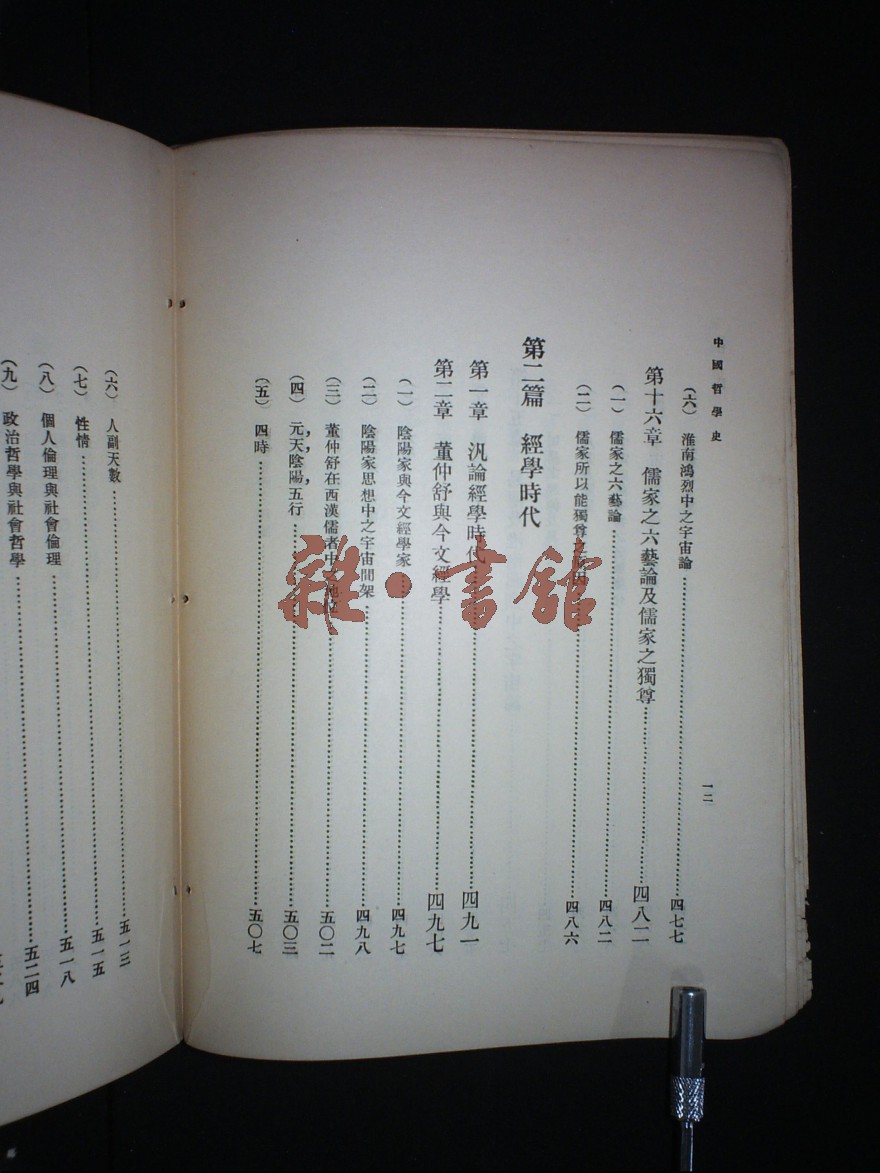 中國哲學史
一二
(六) 淮南鴻烈中之宇宙論……四七七
第十六章 儒家之六藝論及儒家之獨尊……四八二
(一) 儒家之六藝論……四八二
(二) 儒家所以能獨尊 因……四八六
第二篇 經學時代
第一章 汎論經學時代……四九一
第二章 董仲舒與今文經學……四九七
(一) 陰陽家與今文經學家……四九七
(二) 陰陽家思想中之宇宙間架……四九八
(三) 董仲舒在西漢儒者中 地位……五〇二
(四) 元,天,陰陽,五行……五〇三
(五) 四時……五〇七
(六) 人副天數……五一三
(七) 性情……五一五
(八) 個人倫理與社會倫理……五一八
(九) 政治哲學與社會哲學……五二四
雜·書館